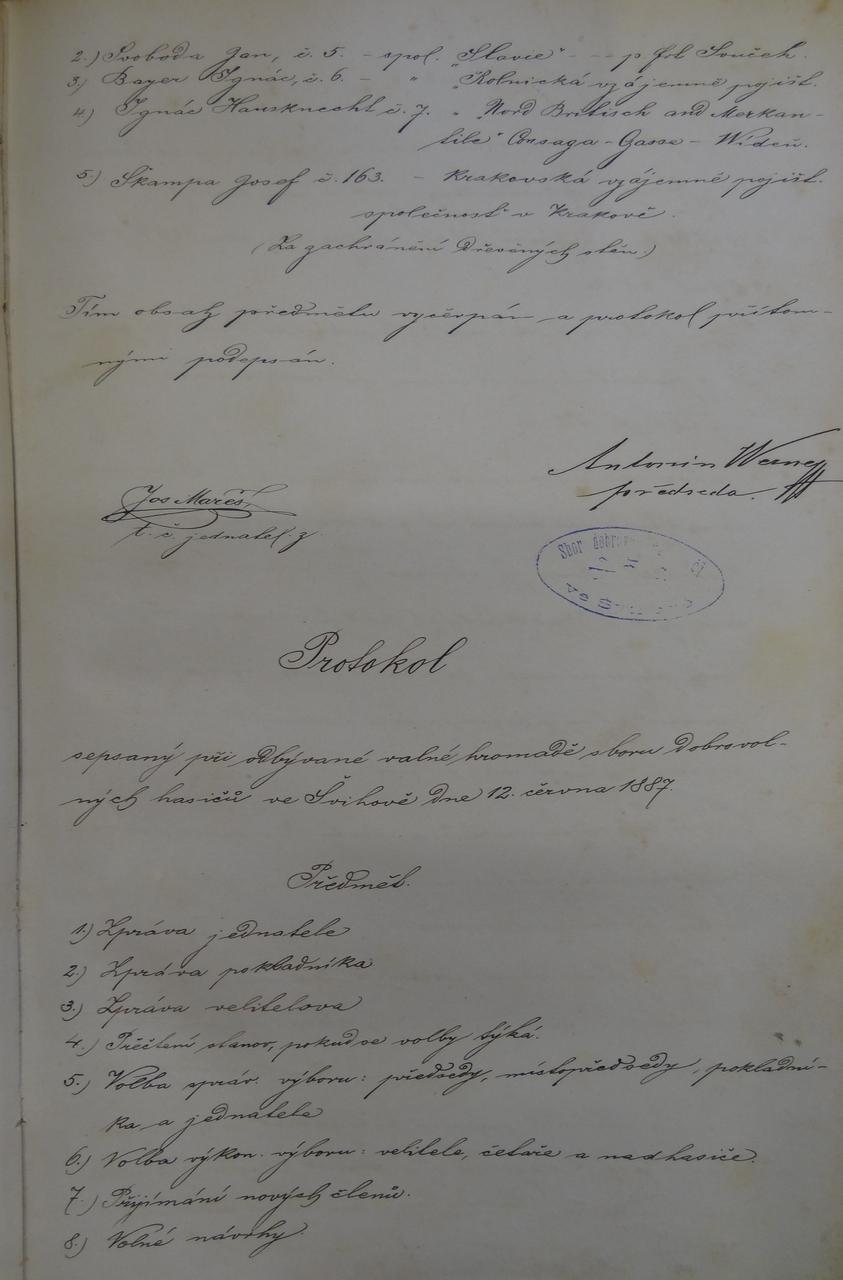 2.) Svoboda Jan, č. 5. – spol. "Slavie" – – p. Jos. Souček.
3.) Bayer Ignác, č. 6. – " "Rolnická vzájemně pojišt.
4.) Ignác Hausknecht č. 7. " "Nord Britisch and Merkan-
tile" Consaga-Gasse – Wídeň.
5.) Škampa Josef č. 163. – Krakovská vzájemně pojišt.
společnost v Krakově.
(Za zachránění dřevěných stěn.)
Tím obsah předmětu vyčerpán a protokol přítom-
nými podepsán.
Antonín Werner
předseda.
Jos Mareš
t. č. jednatel.
Sbor dobrov
Protokol
sepsaný při odbývané valné hromadě sboru dobrovol-
ných hasičů ve Švihově dne 12. června 1887.
Předmět.
1.) Zpráva jednatele
2.) Zpráva pokladníka
3.) Zpráva velitelova
4.) Přečtení stanov, pokud se volby týká.
5.) Volba správ. výboru: předsedy, místopředsedy, pokladní-
ka a jednatele
6.) Volba výkon. výboru: velitele, četaře a nadhasiče.
7.) Přijímání nových členů.
8.) Volné návrhy.